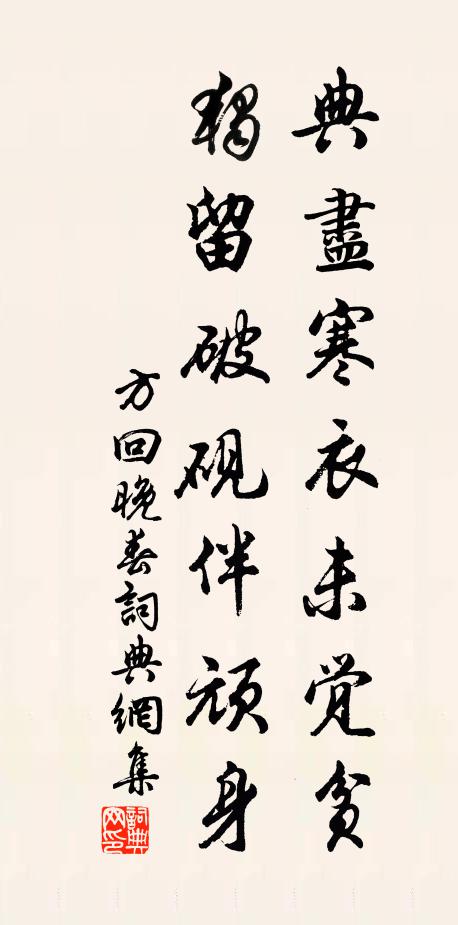 典盡寒衣未覺貧
獨留破硯伴頑身
方回晚春詞典網集
詞典
网印